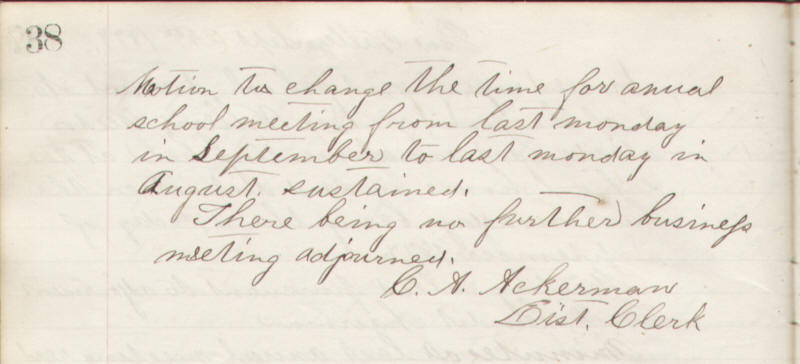 38
Motion to change the time for anual
school meeting from last monday
in September to last monday in
August. sustained.
There being no further business
meeting adjourned.
C. A. Ackerman
Dist. Clerk